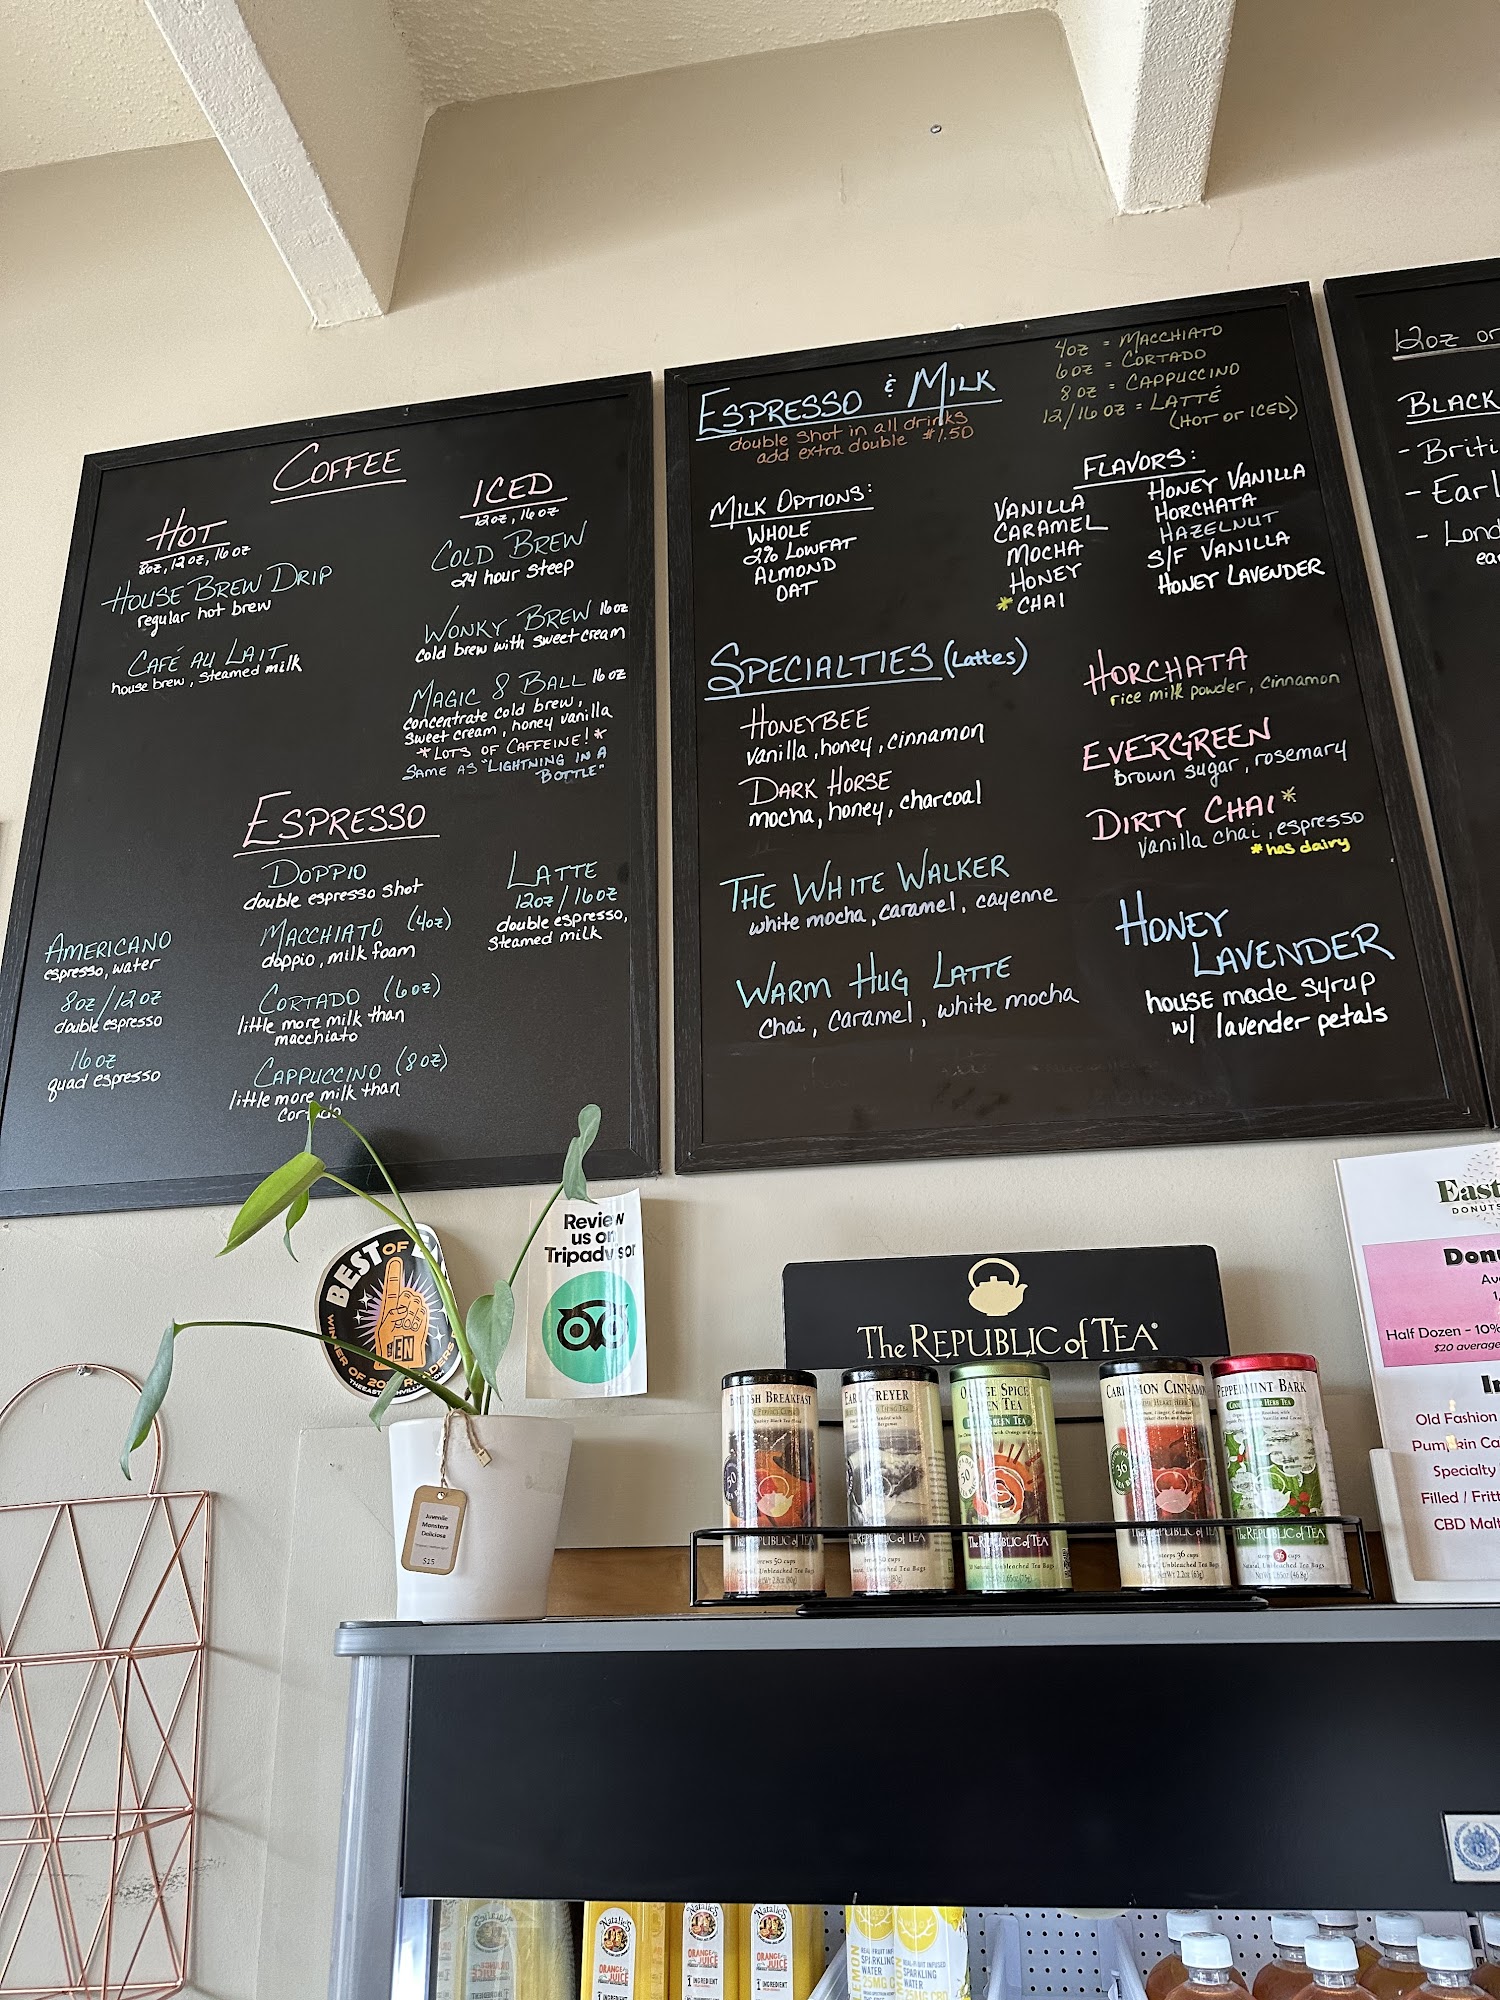 COFFEE
HOT
8oz, 12oz, 16oz
HOUSE BREW DRIP
regular hot brew
CAFÉ AU LAIT
house brew, steamed milk
ICED
12oz, 16oz
COLD BREW
24 hour steep
WONKY BREW 16oz
cold brew with sweet cream
MAGIC 8 BALL 16oz
concentrate cold brew,
sweet cream, honey vanilla
*LOTS OF CAFFEINE!*
SAME AS "LIGHTNING IN A
BOTTLE"
ESPRESSO
AMERICANO
espresso, water
8oz/12oz
double espresso
16oz
quad espresso
DOPPIO
double espresso shot
MACCHIATO (4oz)
doppio, milk foam
CORTADO (6oz)
little more milk than
macchiato
CAPPUCCINO (8oz)
little more milk than
cortado
LATTE
12oz/16oz
double espresso,
steamed milk
ESPRESSO & MILK
double shot in all drinks
add extra double $1.50
4oz = MACCHIATO
6oz = CORTADO
8oz = CAPPUCCINO
12/16oz = LATTÉ
(HOT or ICED)
MILK OPTIONS:
WHOLE
2% LOWFAT
ALMOND
OAT
FLAVORS:
VANILLA
CARAMEL
MOCHA
HONEY
*CHAI
HONEY VANILLA
HORCHATA
HAZELNUT
S/F VANILLA
HONEY LAVENDER
SPECIALTIES (Lattes)
HONEYBEE
vanilla, honey, cinnamon
DARK HORSE
mocha, honey, charcoal
THE WHITE WALKER
white mocha, caramel, cayenne
WARM HUG LATTE
chai, caramel, white mocha
HORCHATA
rice milk powder, cinnamon
EVERGREEN
brown sugar, rosemary
DIRTY CHAI*
vanilla chai, espresso
*has dairy
HONEY
LAVENDER
house made syrup
w/ lavender petals
12oz or
BLACK
- Briti
- Earl
- Lond
ea
BEST OF
Review
us on
Tripadvisor
Juvenile
Monstera
Deliciosa
$15
The REPUBLIC of TEA
BRITISH BREAKFAST
The REPUBLIC of TEA
EARL GREYER
The REPUBLIC of TEA
ORANGE SPICE
GREEN TEA
The REPUBLIC of TEA
CARDAMON CINNAMON
steeps 36 cups
The REPUBLIC of TEA
PEPPERMINT BARK
The REPUBLIC of TEA
steeps 36 cups
East
DONUTS
Don
Half Dozen - 10%
$20 average
Old Fashion
Pumpkin Ca
Specialty
Filled / Fritt
CBD Malt
Natalie's
ORANGE
JUICE
1 INGREDIENT
Natalie's
ORANGE
JUICE
1 INGREDIENT
Natalie's
ORANGE
JUICE
INGREDIENT
LEMON
SPARKLING
WATER
25MG C
SPARKLING
WATER
25MG CBD